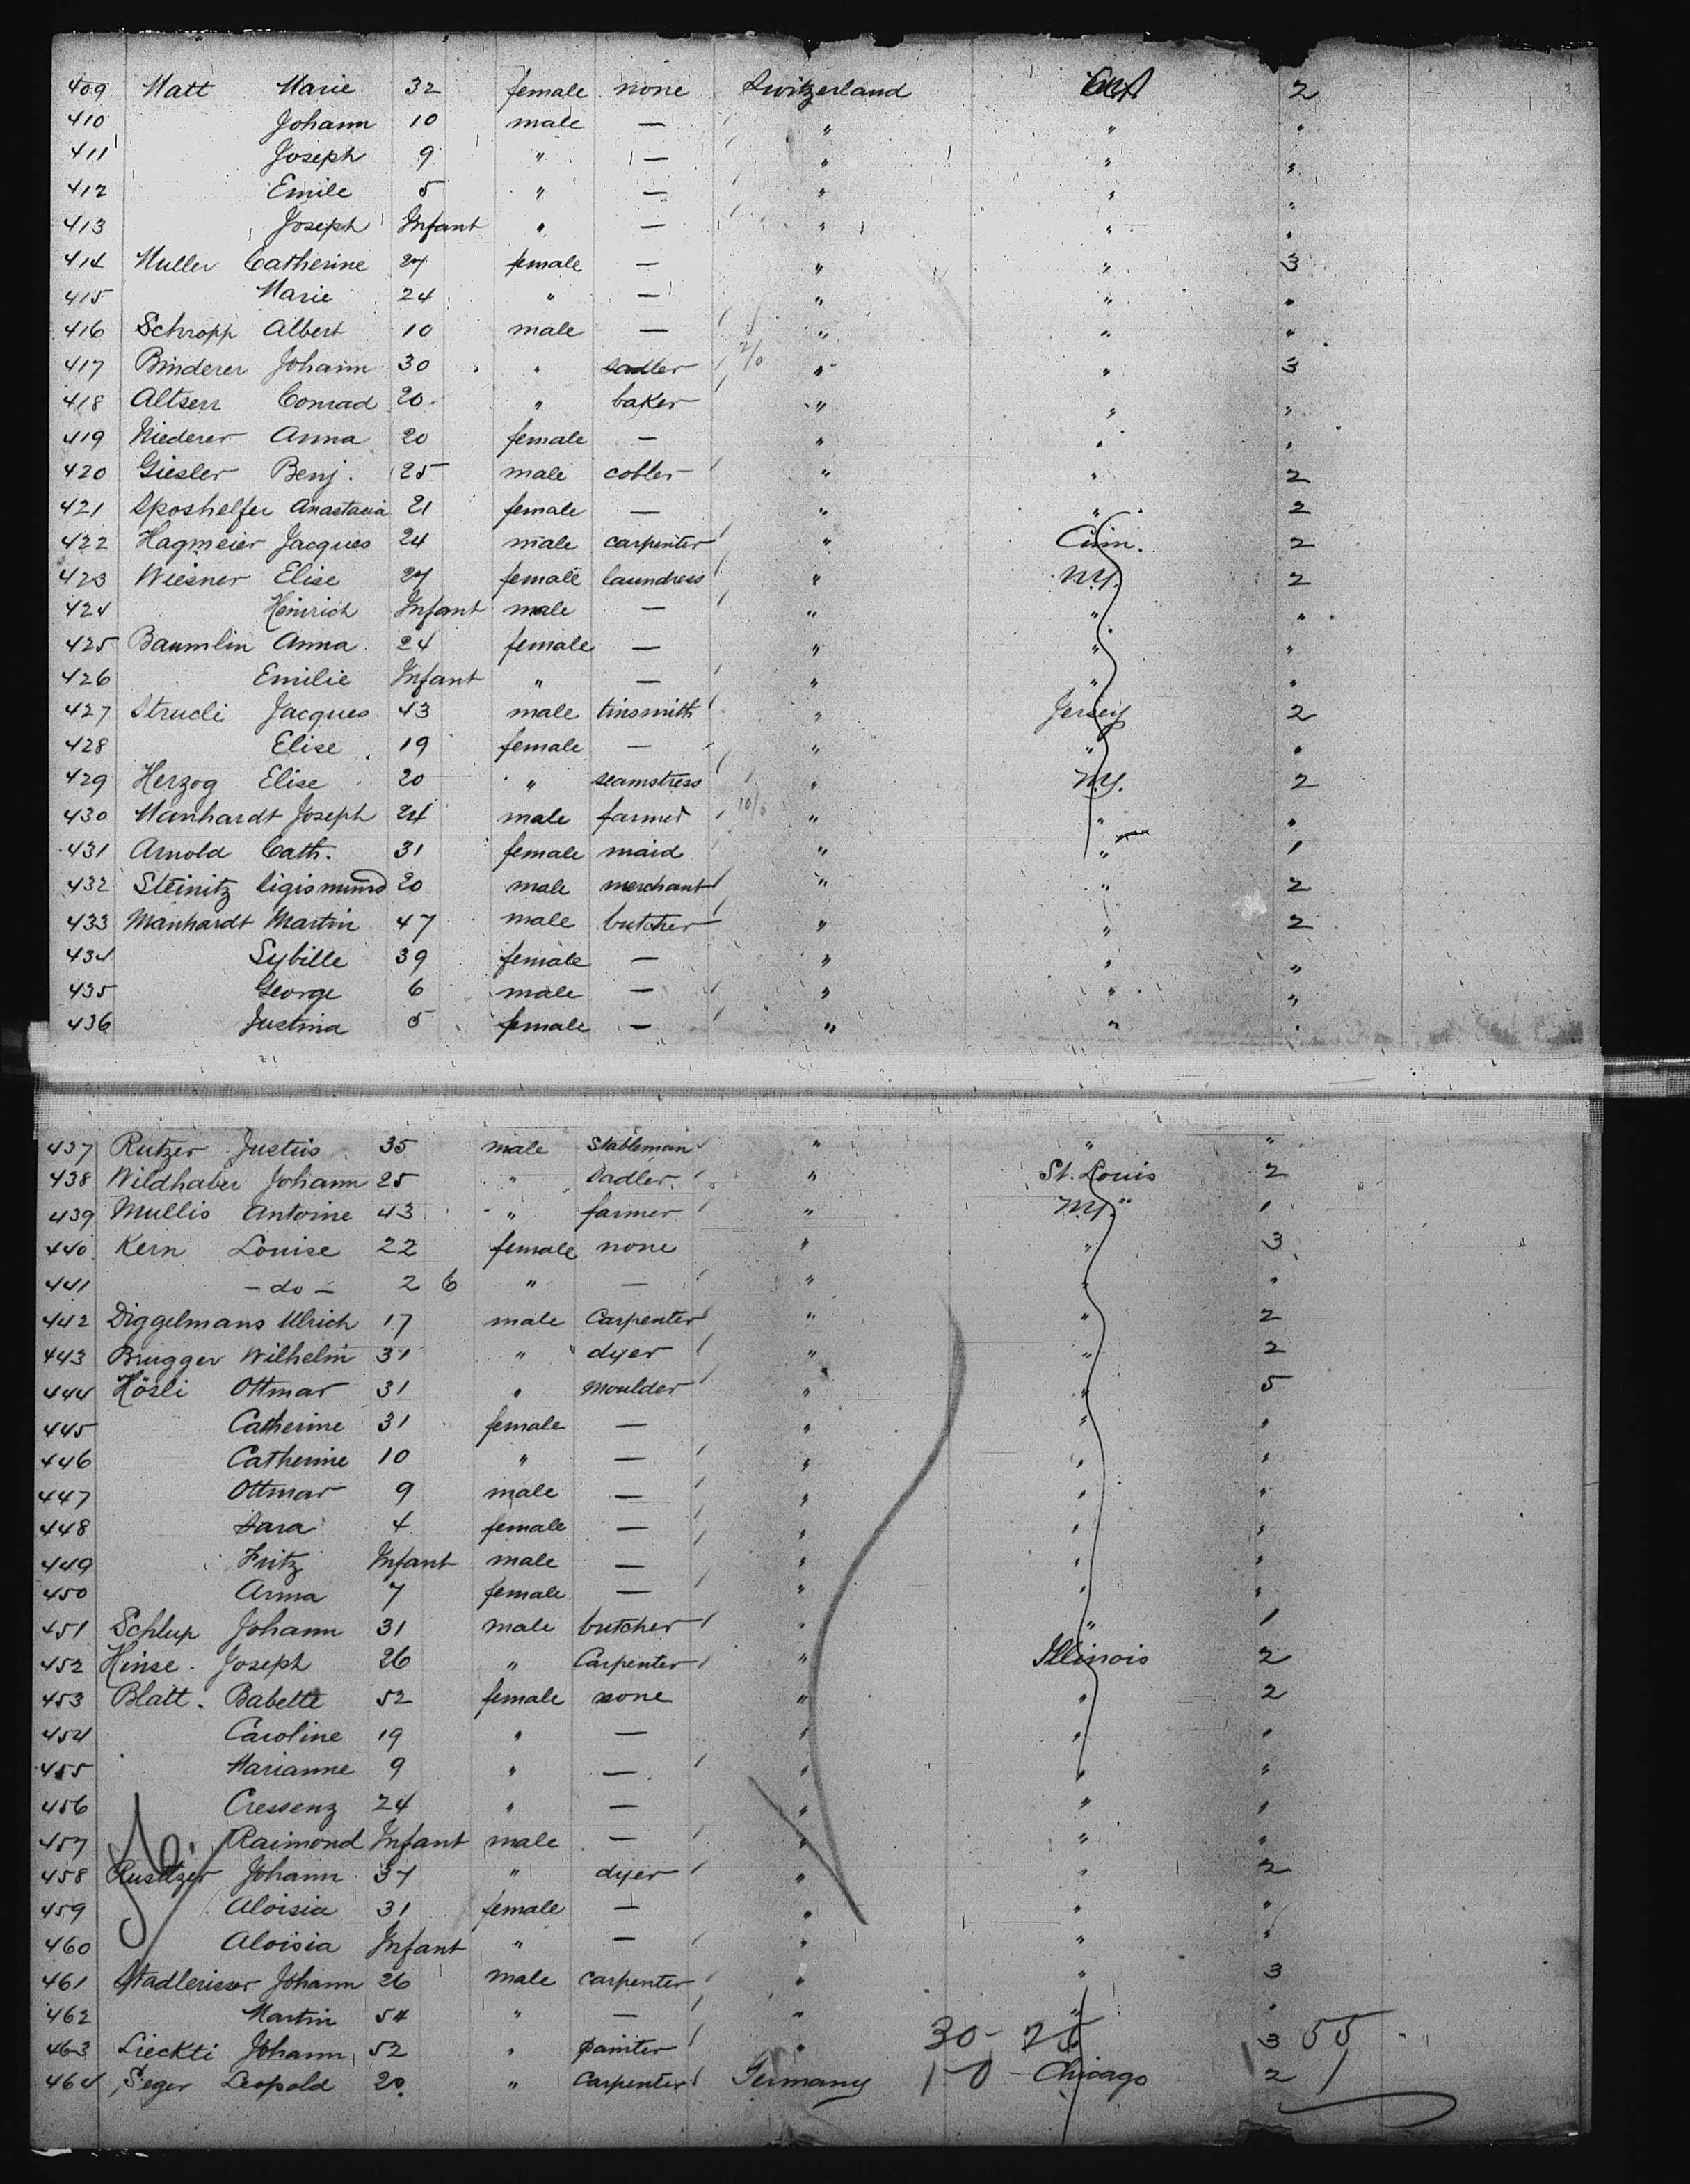 409 Matt Marie 32 female none Switzerland 2
410 Johann 10 male — " " "
411 Joseph 9 " — " " "
412 Emile 5 " — " " "
413 Joseph Infant " — " " "
414 Muller Catherine 27 female — " " 3
415 Marie 24 " — " " "
416 Schropp Albert 10 male — " " "
417 Binderer Johann 30 " sadler " " 3
418 Conrad 20 " baker " " "
419 Niederer Anna 20 female — " " "
420 Giesler Benj. 25 male cobler " " 2
421 Sposhelfer Anastasia 21 female — " " 2
422 Hagmeier Jacques 24 male carpenter " Cinn. 2
423 Wiesner Elise 27 female laundress " N.Y. 2
424 Heinrich Infant male — " " "
425 Baumlin Anna 24 female — " " "
426 Emilie Infant " — " " "
427 Strucli Jacques 43 male tinsmith " Jersey 2
428 Elise 19 female — " " "
429 Herzog Elise 20 " seamstress " N.Y. 2
430 Manhardt Joseph 24 male farmer " " "
431 Arnold Cath. 31 female maid " " 1
432 Steinitz Sigismund 20 male merchant " " 2
433 Manhardt Martin 47 male butcher " " 2
434 Sybille 39 female — " " "
435 George 6 male — " " "
436 Justina 5 female — " " "
437 Rutzer Justus 35 male Stableman " " "
438 Wildhaber Johann 25 " Sadler " St. Louis 2
439 Mullis Antoine 43 " farmer " N.Y. 1
440 Kern Louise 22 female none " " 3
441 — do — 2 6 " — " " "
442 Diggelmans Ulrich 17 male Carpenter " " 2
443 Brugger Wilhelm 31 " dyer " " 2
444 Hösli Ottmar 31 " Moulder " " 5
445 Catherine 31 female — " " "
446 Catherine 10 " — " " "
447 Ottmar 9 male — " " "
448 Sara 4 female — " " "
449 Fritz Infant male — " " "
450 Anna 7 female — " " "
451 Schlup Johann 31 male butcher " " 1
452 Hinse Joseph 26 " Carpenter " Illinois 2
453 Blatt Babette 52 female none " " 2
454 Caroline 19 " — " " "
455 Marianne 9 " — " " "
456 Cressenz 24 " — " " "
457 Raimond Infant male — " " "
458 Johann 37 " dyer " " 2
459 Aloisia 31 female — " " "
460 Aloisia Infant " — " " "
461 Johann 26 male carpenter " " 3
462 Martin 54 " — " " "
463 Lieckti Johann 52 " painter " 30 - 25 3 55
464 Seger Leopold 20 " Carpenter Germany 1-0 - Chicago 2 1